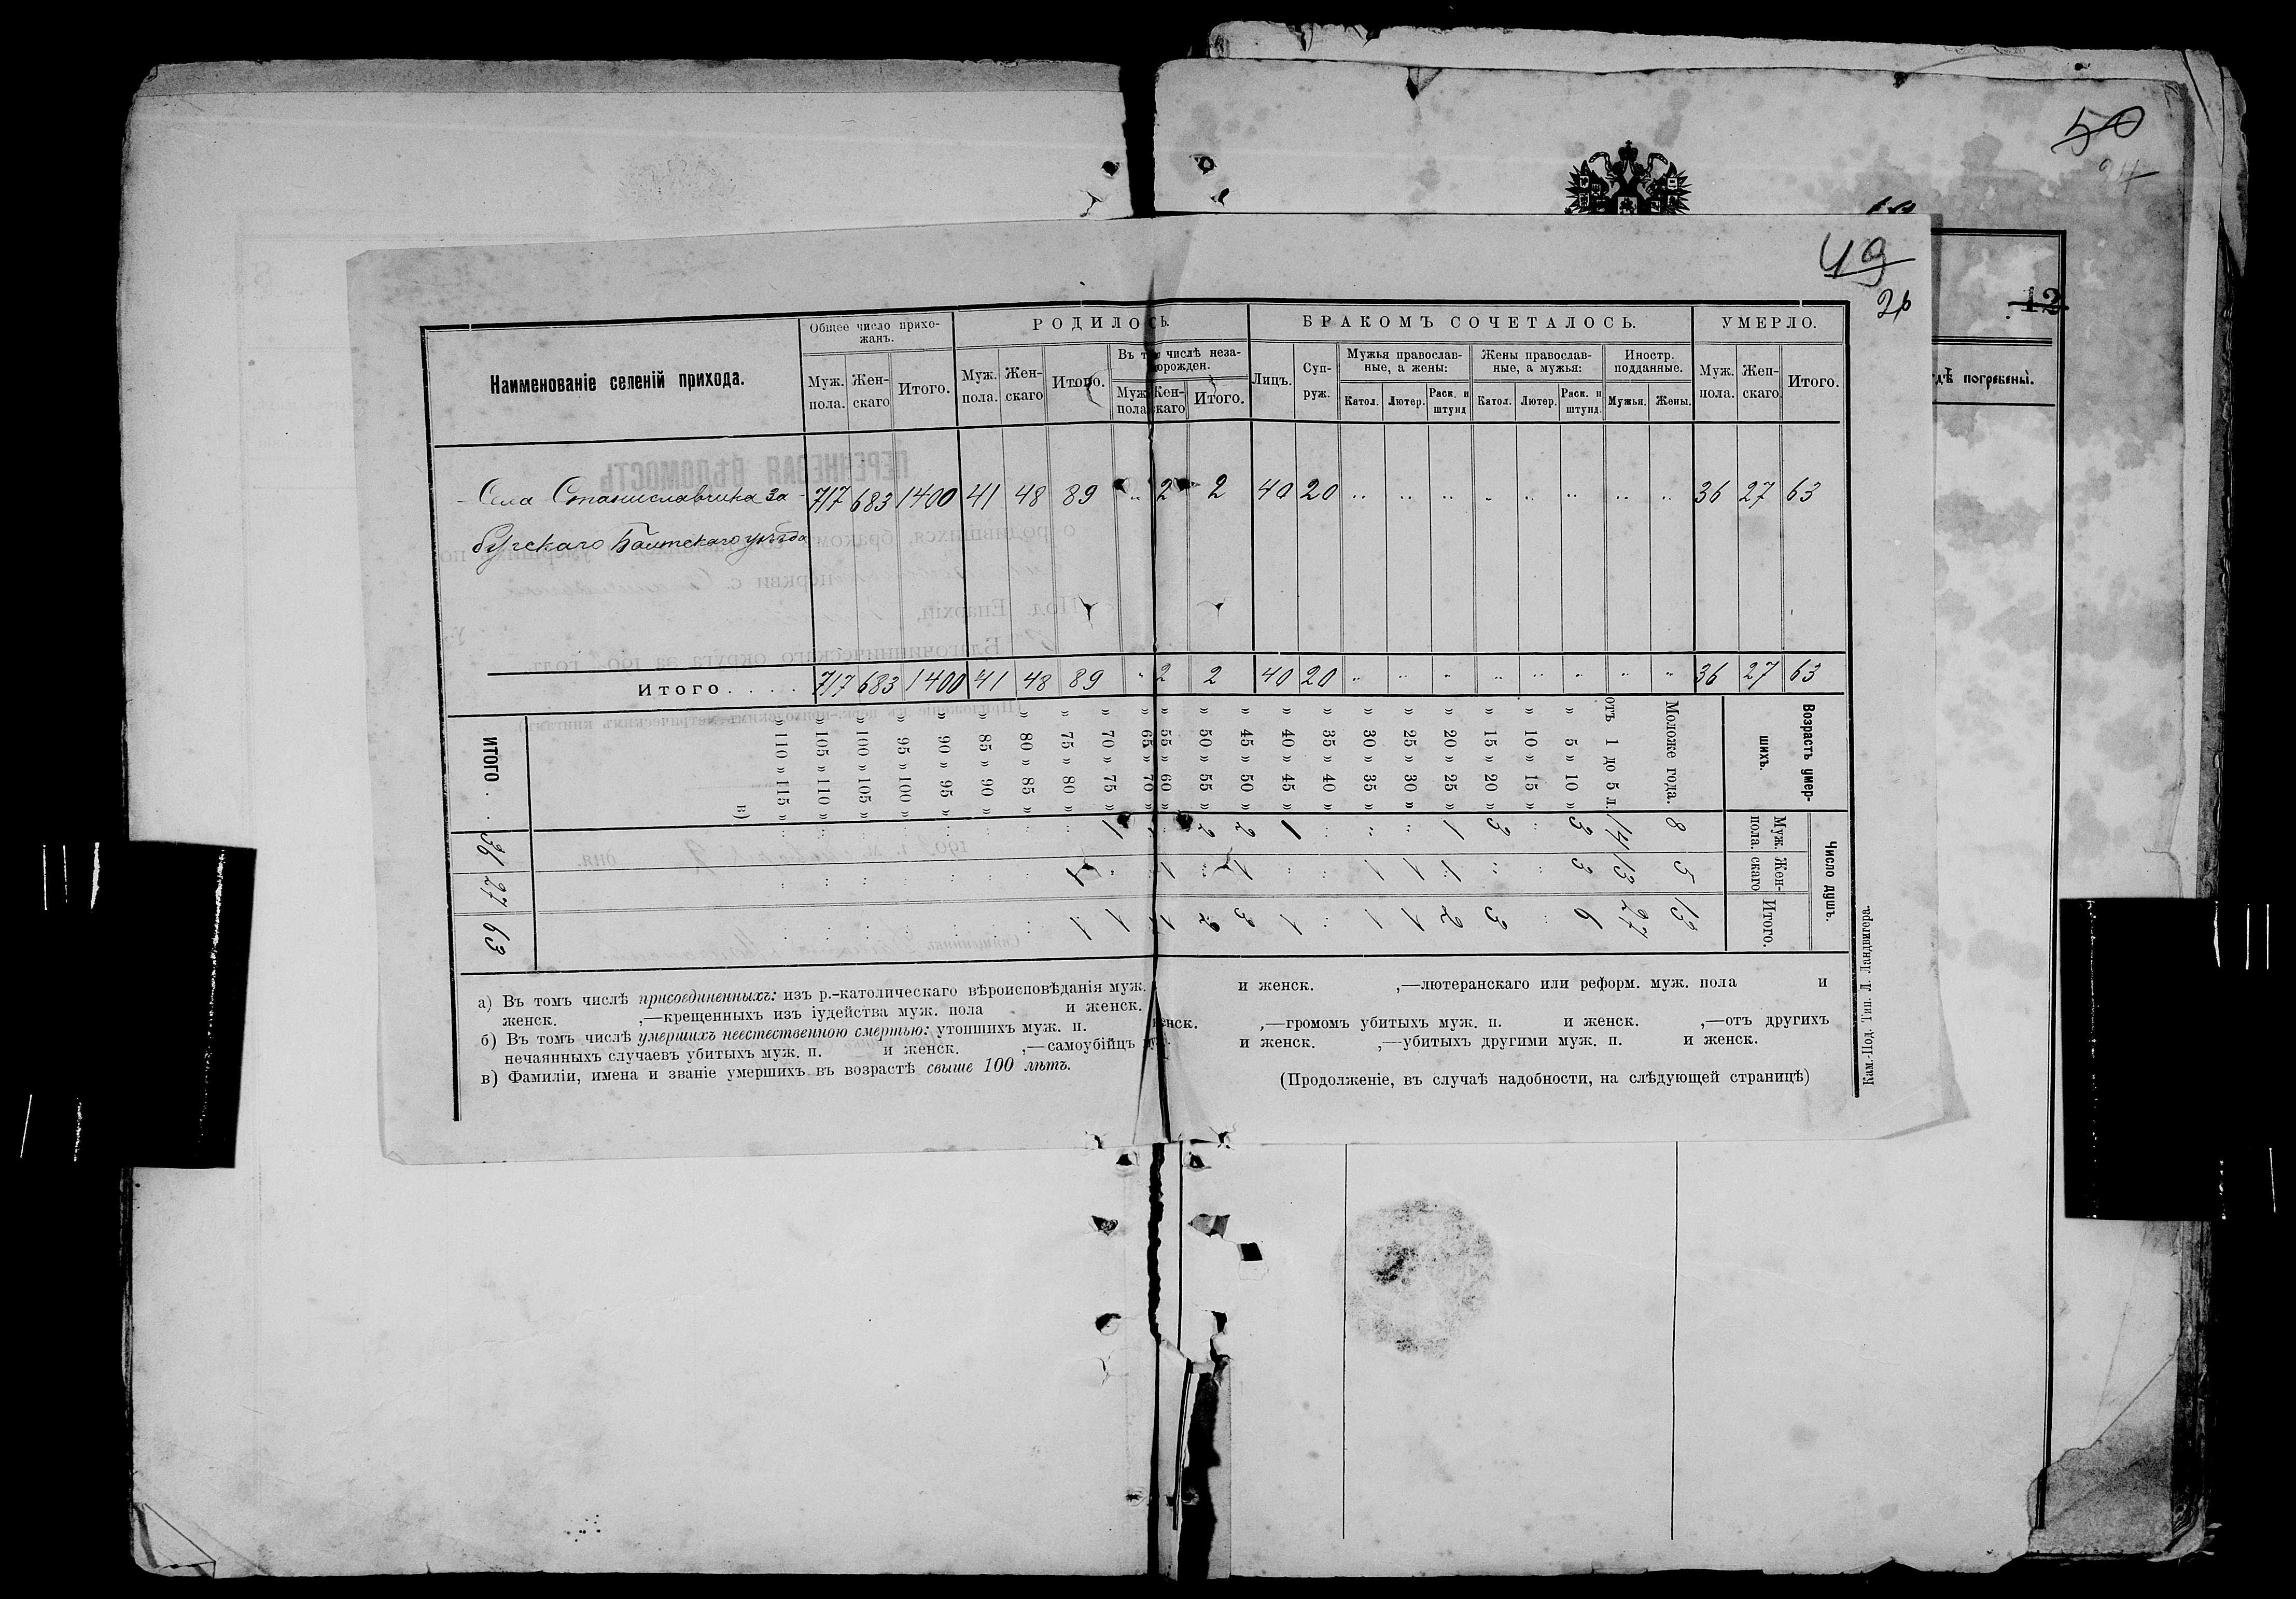 50
94
12
гдѣ погребены.
49
Наименованіе селеній прихода.
Общее число прихожанъ.
Муж. пола. Женскаго Итого.
РОДИЛОСЬ.
Муж. пола. Женскаго Итого.
Въ томъ числѣ незаконорожден.
Муж. пола Женскаго Итого.
БРАКОМЪ СОЧЕТАЛОСЬ.
Лицъ. Супруж.
Мужья православные, а жены:
Катол. Лютер. Раск. и штунд
Жены православные, а мужья:
Катол. Лютер. Раск. и штунд.
Иностр. подданные.
Мужья. Жены.
УМЕРЛО.
Муж. пола. Женскаго Итого.
Села Станиславчика за- 717 683 1400 41 48 89 „ 2 2 40 20 „ „ „ „ „ „ „ „ 36 27 63
бугскаго Балтскаго уѣзда
Итого.... 717 683 1400 41 48 89 „ 2 2 40 20 „ „ „ „ „ „ „ „ 36 27 63
Возрастъ умершихъ.
Число душъ.
Муж. пола. Женскаго Итого.
Моложе года. 8 5 13
отъ 1 до 5 л. 14 13 27
„ 5 „ 10 „ 3 3 6
„ 10 „ 15 „ : : :
„ 15 „ 20 „ 3 : 3
„ 20 „ 25 „ 1 1 2
„ 25 „ 30 „ : 1 1
„ 30 „ 35 „ : 1 1
„ 35 „ 40 „ : : :
„ 40 „ 45 „ 1 : 1
„ 45 „ 50 „ 2 1 3
„ 50 „ 55 „ 2 : 2
„ 55 „ 60 „
„ 65 „ 70 „
„ 70 „ 75 „ 1 : 1
„ 75 „ 80 „ : 1 1
„ 80 „ 85 „ : : :
„ 85 „ 90 „ : : :
„ 90 „ 95 „ : : :
„ 95 „ 100 „ : : :
„ 100 „ 105 „ : : :
„ 105 „ 110 „ : : :
„ 110 „ 115 „ : : :
в)
ИТОГО . . 36 27 63
а) Въ томъ числѣ присоединенныхъ: изъ р.-католическаго вѣроисповѣданія муж. и женск. ,—лютеранскаго или реформ. муж. пола и
женск. ,—крещенныхъ изъ іудейства муж. пола и женск.
б) Въ томъ числѣ умершихъ неестественною смертью: утопшихъ муж. п. женск. ,—громомъ убитыхъ муж. п. и женск. ,—отъ другихъ
нечаянныхъ случаевъ убитыхъ муж. п. и женск. ,—самоубійцъ и женск. ,—убитыхъ другими муж. п. и женск.
в) Фамиліи, имена и званіе умершихъ въ возрастѣ свыше 100 лѣтъ.
(Продолженіе, въ случаѣ надобности, на слѣдующей страницѣ)
Кам.-Под. Тип. Л. Ландвигера.